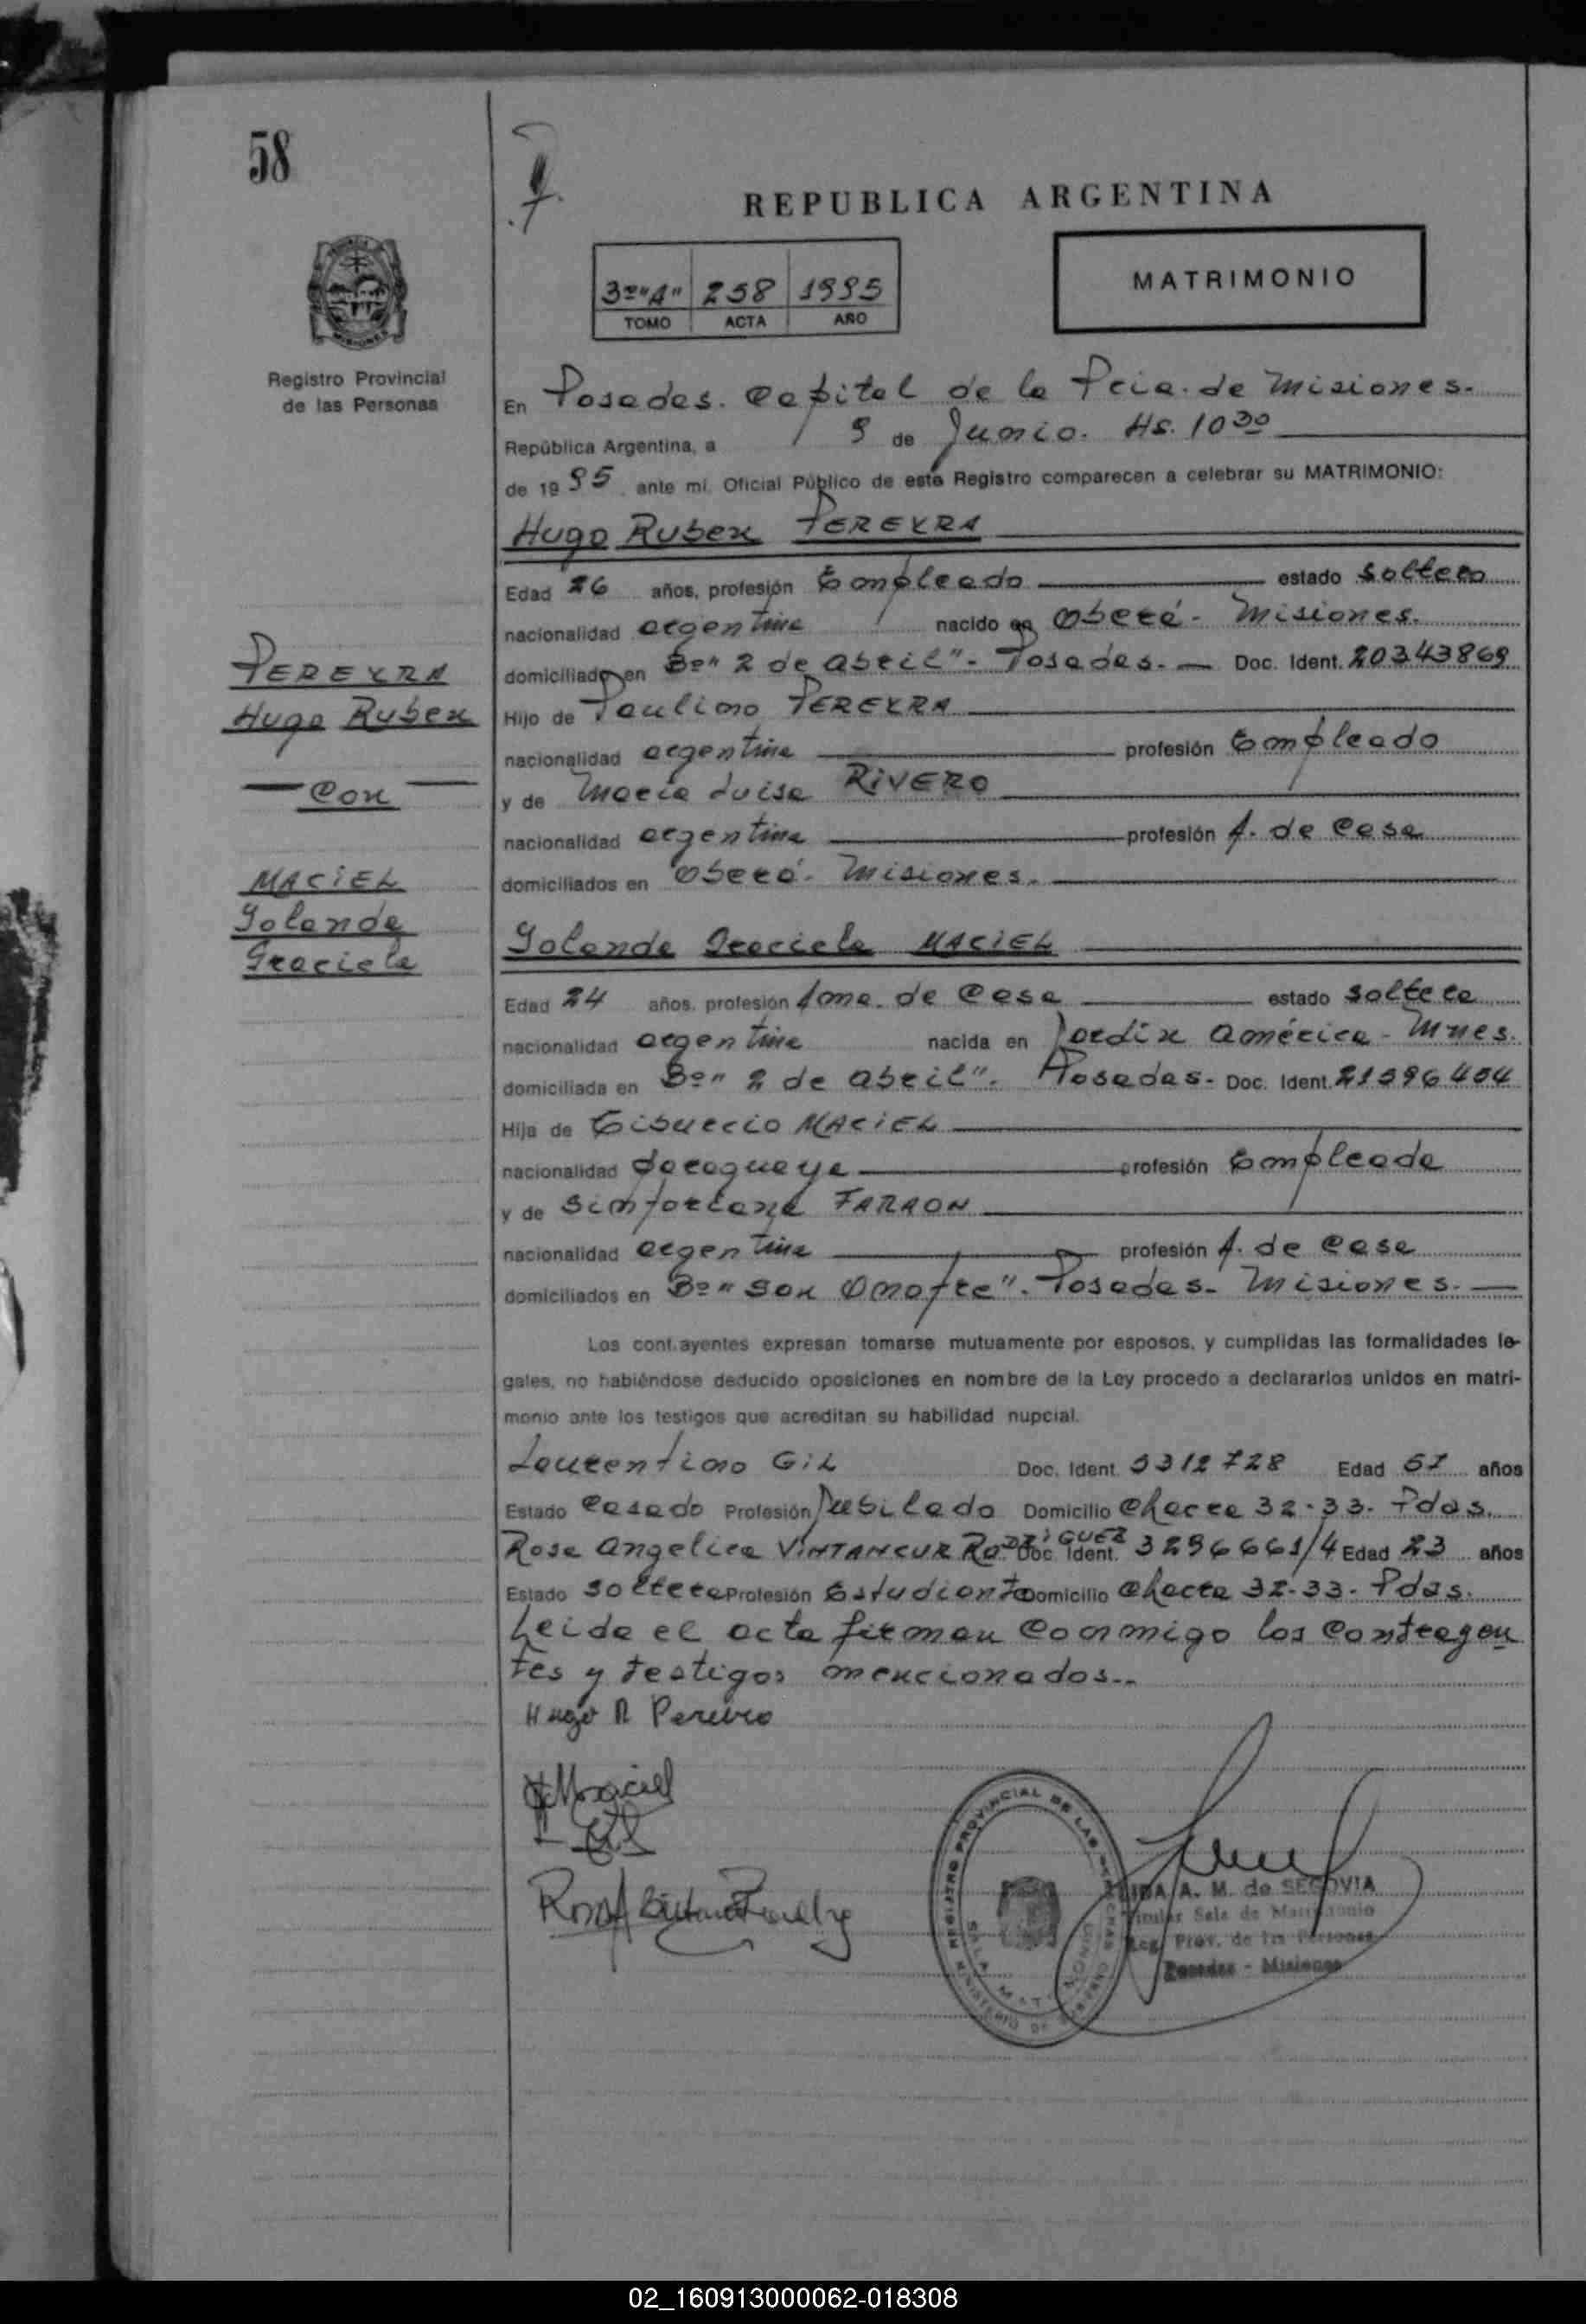 58
REPUBLICA ARGENTINA
3º "A" 258 1995
TOMO ACTA AÑO
MATRIMONIO
Registro Provincial
de las Personas
En Posadas. Capital de la Pcia. de Misiones.
República Argentina, a 9 de Junio. Hs. 10 30
de 19 95, ante mi, Oficial Público de este Registro comparecen a celebrar su MATRIMONIO:
Hugo Ruben PEREYRA
Edad 26 años, profesión Empleado estado soltero
nacionalidad argentina nacido en Oberá - Misiones.
domiciliado en Bº "2 de Abril" - Posadas. - Doc. Ident. 20343869
PEREYRA
Hugo Ruben
Hijo de Paulino PEREYRA
nacionalidad argentina profesión Empleado
- Con -
y de Maria Luisa RIVERO
nacionalidad argentina profesión A. de Casa
domiciliados en Oberá - Misiones.
MACIEL
Yolanda
Graciela
Yolanda Graciela MACIEL
Edad 24 años, profesión Ama. de Casa estado soltera
nacionalidad argentina nacida en Jardín América - Mnes.
domiciliada en Bº "2 de Abril". Posadas. Doc. Ident. 21396404
Hija de Tiburcio MACIEL
nacionalidad paraguaya profesión Empleado
y de Simforiana FARAON
nacionalidad argentina profesión A. de Casa
domiciliados en Bº "San Onofre". Posadas. Misiones. -
Los contrayentes expresan tomarse mutuamente por esposos, y cumplidas las formalidades le-
gales, no habiéndose deducido oposiciones en nombre de la Ley procedo a declararlos unidos en matri-
monio ante los testigos que acreditan su habilidad nupcial.
Laurentino GIL Doc. Ident. 5312728 Edad 57 años
Estado Casado Profesión Jubilado Domicilio Chacra 32-33. Pdas.
Rosa Angelica VINTANCUR RODRIGUEZ Doc. Ident. 3296661/4 Edad 23 años
Estado soltera Profesión Estudiante Domicilio Chacra 32-33. Pdas.
Leida el acta firman conmigo los contrayen
tes y testigos mencionados..
Hugo R Pereira
Maciel
REGISTRO PROVINCIAL DE LAS PERSONAS
MINISTERIO DE GOBIERNO
A. M. de SEGOVIA
Titular Sala de Matrimonio
Reg. Prov. de las Personas
Posadas - Misiones
02_160913000062-018308